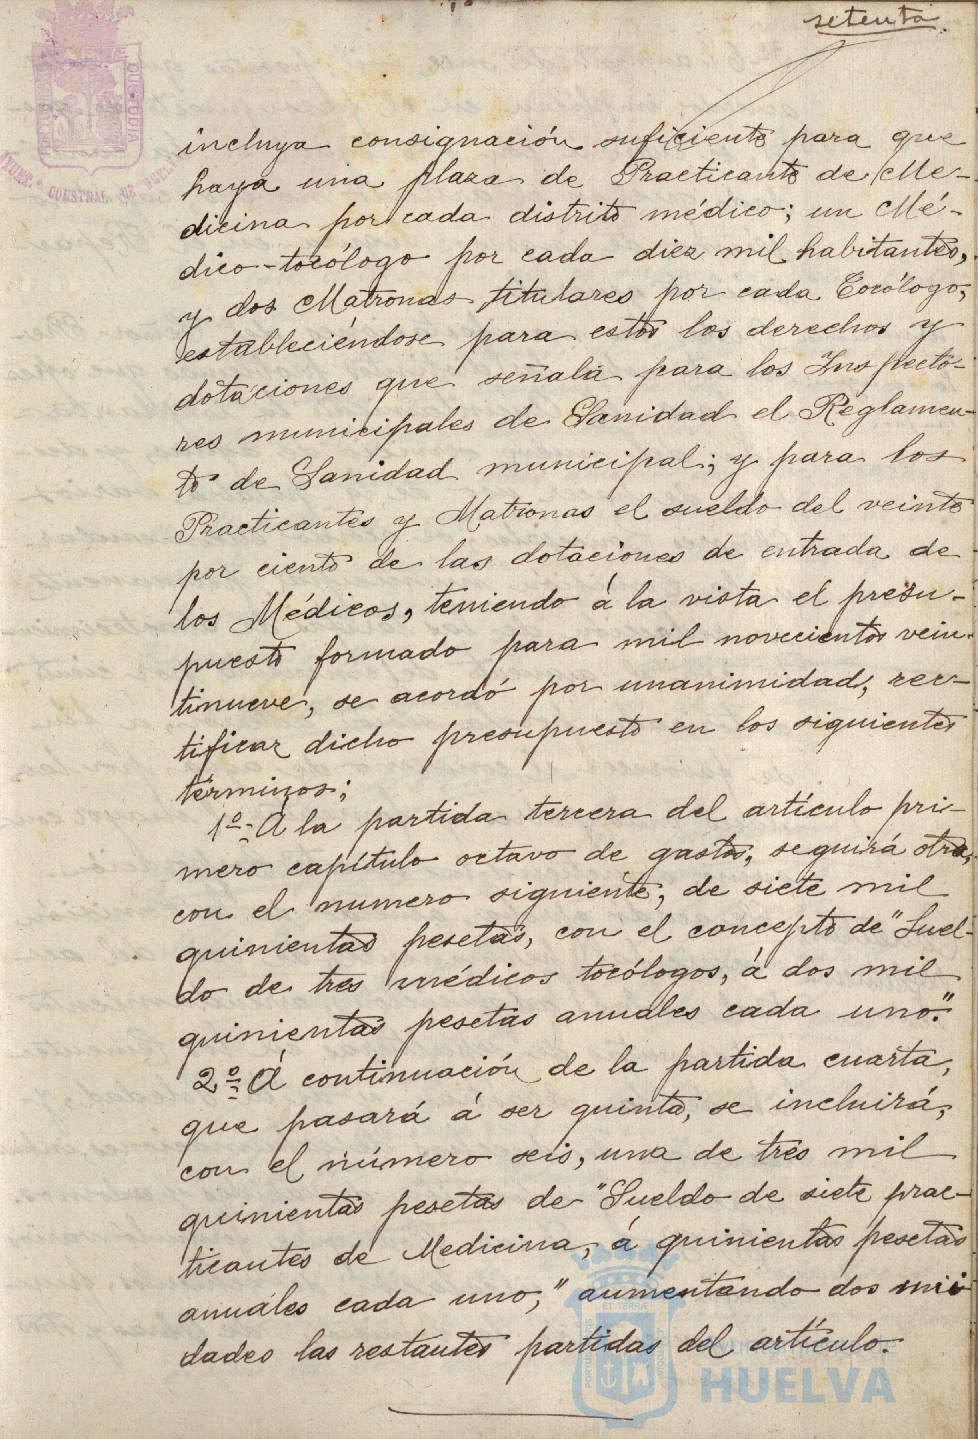 setenta.
incluya consignación suficiente para que
haya una plaza de Practicante de Me-
dicina por cada distrito médico; un Mé-
dico-tocólogo por cada diez mil habitantes,
y dos Matronas titulares por cada Tocólogo;
estableciéndose para estos los derechos y
dotaciones que señala para los Inspecto-
res municipales de Sanidad el Reglamen-
to de Sanidad municipal; y para los
Practicantes y Matronas el sueldo del veinte
por ciento de las dotaciones de entrada de
los Médicos, teniendo á la vista el presu-
puesto formado para mil novecientos vein-
tinueve, se acordó por unanimidad, rec-
tificar dicho presupuesto en los siguientes
términos;
1º- Á la partida tercera del artículo pri-
mero capítulo octavo de gastos, seguirá otra,
con el numero siguiente, de siete mil
quinientas pesetas, con el concepto de "Suel-
do de tres médicos tocólogos, á dos mil
quinientas pesetas anuales cada uno."
2º- Á continuación de la partida cuarta,
que pasará á ser quinta, se incluirá,
con el número seis, una de tres mil
quinientas pesetas de "Sueldo de siete prac-
ticantes de Medicina, á quinientas pesetas
anuales cada uno," aumentando dos uni
dades las restantes partidas del artículo.
HUELVA